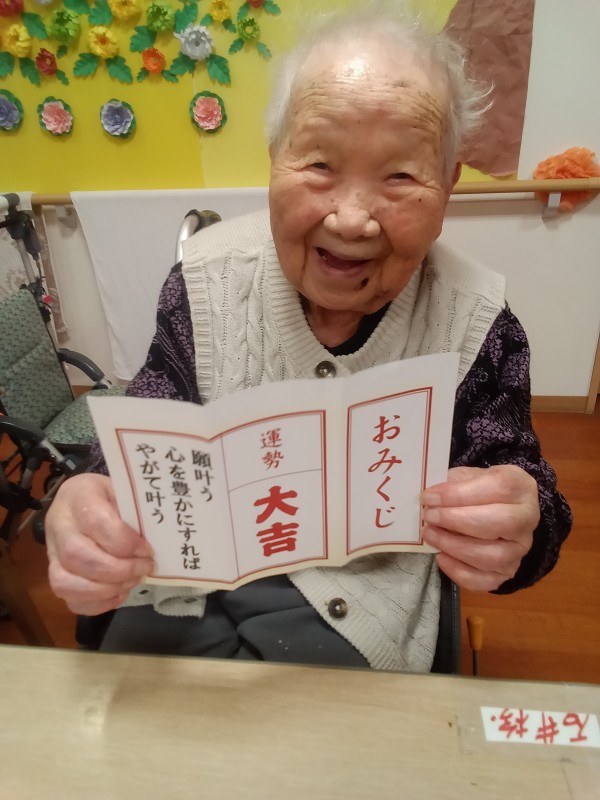 おみくじ
運勢
大吉
願叶う
心を豊かにすれば
やがて叶う
石井様